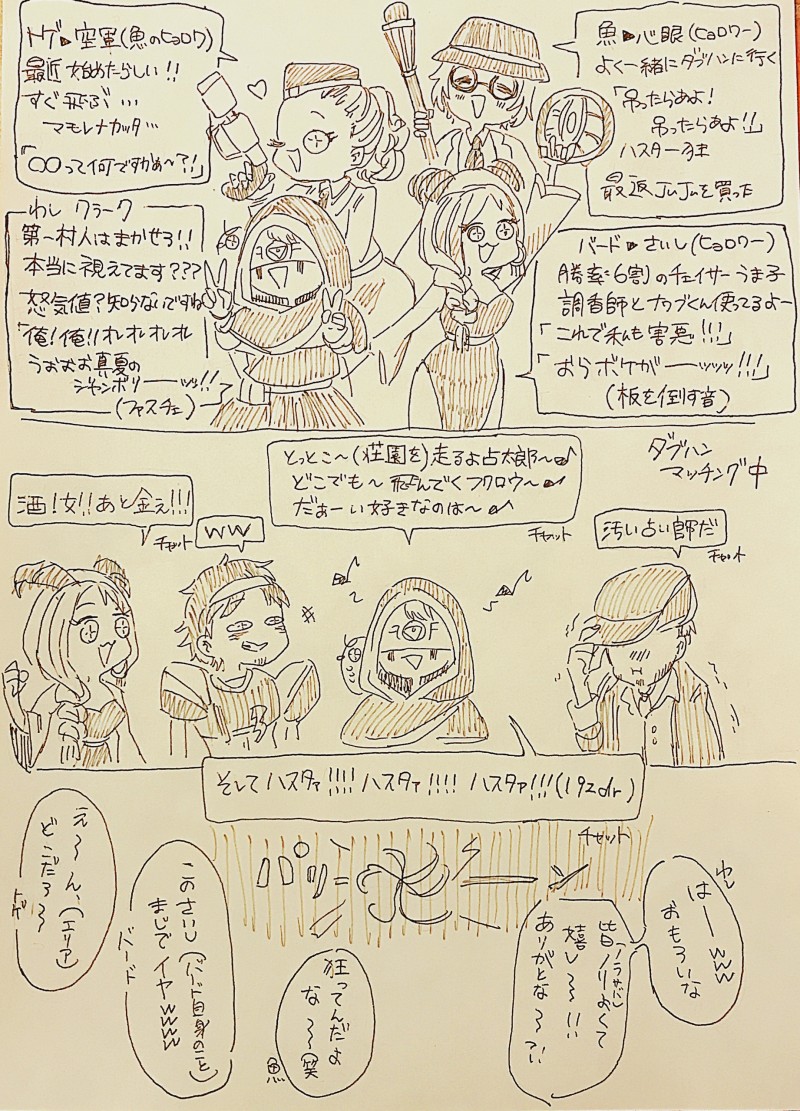 トゲ▶空軍(魚のヒョロワ)
最近始めたらしい!!
すぐ飛ぶ…
マモレナカッタ…
「○○って何ですかぁ〜?!」
魚▶心眼(ヒョロワー)
よく一緒にダブハンに行く
「吊ったらあよ!
吊ったらあよ!!」
ハスター狂
最近JuJuを買った
わし クラーク
第一村人はまかせろ!!
本当に視えてます???
怒気値?知らないですね
「俺!俺!!オレオレオレ
うおおお真夏の
ジャンボリーーッッ!!」
(ファスチェ)
バード▶さいし(ヒョロワー)
勝率6割のチェイサーうま子
調香師とナワブくん使ってるよー
「これで私も害悪!!!」
「おらボケがーーッッッ!!!」
(板を倒す音)
ダブハン
マッチング中
とっとこ〜(荘園を)走るよ占太郎〜♪
どこでも〜飛んでくフクロウ〜♪
だぁーい好きなのは〜♪
チャット
酒!女!!あと金ぇ!!!
チャット
ww
汚い占い師だ
チャット
そしてハスタァ!!!!ハスタァ!!!!ハスタァ!!!(192dr)
チャット
わし
はーwww
おもろいな
皆(ノラさん)ノリよくて
嬉し〜!!
ありがとな〜
狂ってんだよ
な〜(笑
魚
このさいし(バード自身のこと)
まじでイヤwwww
バード
え〜ん、(エリア)
どこだろ〜
トゲ